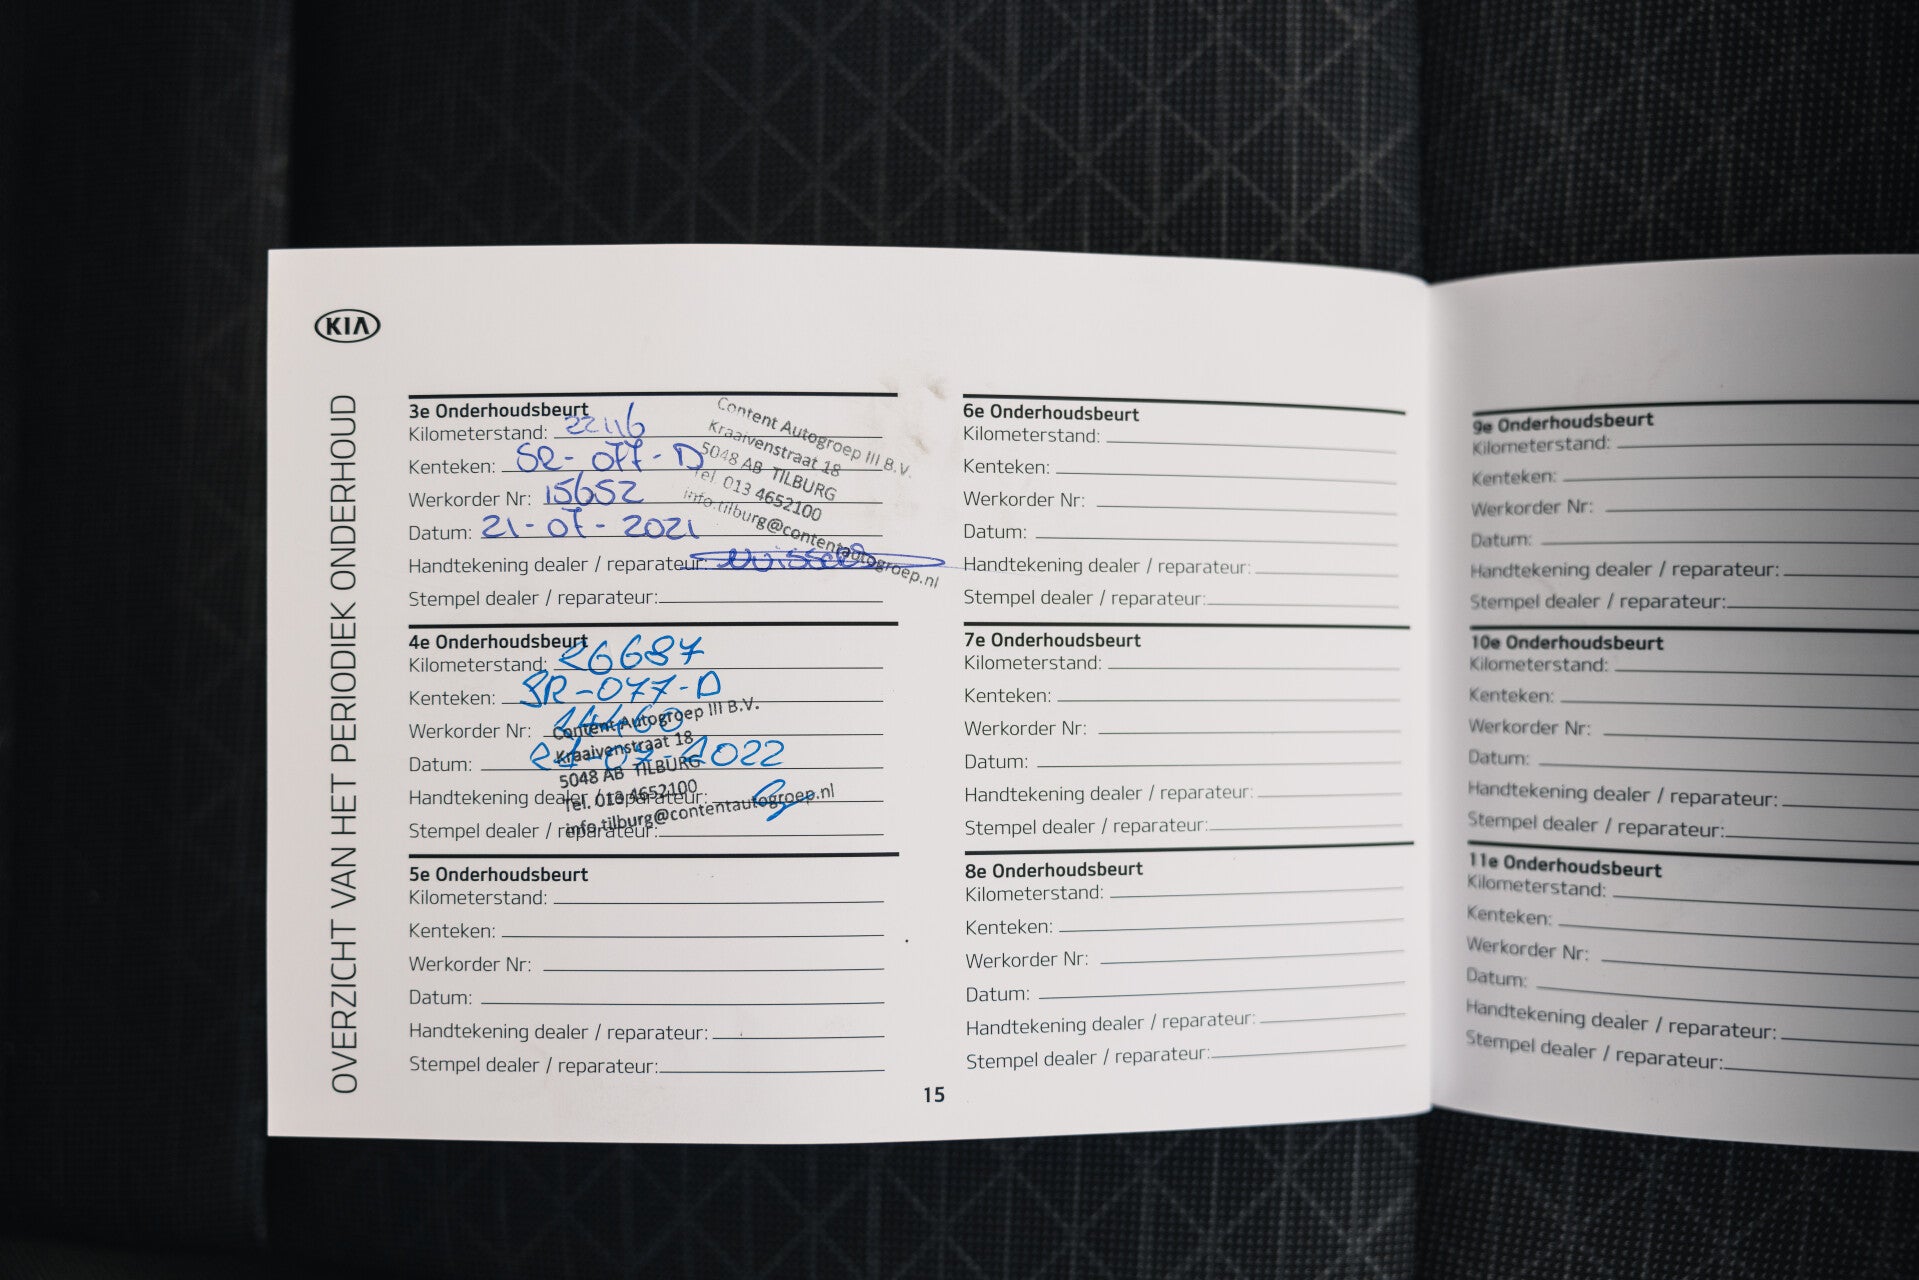 KIA
OVERZICHT VAN HET PERIODIEK ONDERHOUD
3e Onderhoudsbeurt
Kilometerstand: 22116
Kenteken: SR-077-D
Werkorder Nr: 15652
Datum: 21-07-2021
Handtekening dealer / reparateur:
Stempel dealer / reparateur:
Content Autogroep III B.V.
Kraaivenstraat 18
5048 AB TILBURG
Tel. 013 4652100
info.tilburg@contentautogroep.nl
4e Onderhoudsbeurt
Kilometerstand: 26687
Kenteken: SR-077-D
Werkorder Nr:
Datum: 21-07-2022
Handtekening dealer / reparateur:
Stempel dealer / reparateur:
Content Autogroep III B.V.
Kraaivenstraat 18
5048 AB TILBURG
Tel. 013 4652100
info.tilburg@contentautogroep.nl
5e Onderhoudsbeurt
Kilometerstand:
Kenteken:
Werkorder Nr:
Datum:
Handtekening dealer / reparateur:
Stempel dealer / reparateur:
6e Onderhoudsbeurt
Kilometerstand:
Kenteken:
Werkorder Nr:
Datum:
Handtekening dealer / reparateur:
Stempel dealer / reparateur:
7e Onderhoudsbeurt
Kilometerstand:
Kenteken:
Werkorder Nr:
Datum:
Handtekening dealer / reparateur:
Stempel dealer / reparateur:
8e Onderhoudsbeurt
Kilometerstand:
Kenteken:
Werkorder Nr:
Datum:
Handtekening dealer / reparateur:
Stempel dealer / reparateur:
15
9e Onderhoudsbeurt
Kilometerstand:
Kenteken:
Werkorder Nr:
Datum:
Handtekening dealer / reparateur:
Stempel dealer / reparateur:
10e Onderhoudsbeurt
Kilometerstand:
Kenteken:
Werkorder Nr:
Datum:
Handtekening dealer / reparateur:
Stempel dealer / reparateur:
11e Onderhoudsbeurt
Kilometerstand:
Kenteken:
Werkorder Nr:
Datum:
Handtekening dealer / reparateur:
Stempel dealer / reparateur: